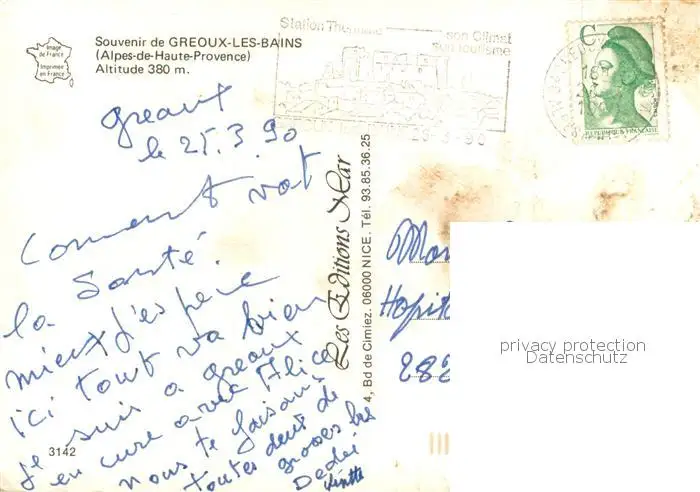 Image
de France
Imprimée
en France
Souvenir de GREOUX-LES-BAINS
(Alpes-de-Haute-Provence)
Altitude 380 m.
Station Thermale
son Climat
son tourisme
REPUBLIQUE FRANÇAISE
greoux
le 25.3.90
Coment vat
la Santé.
mieux j'espère
ici tout va bien
je suis a greoux
en cure avec Alice
nous te faisons
toutes deux de
grosses bis
Dédéi
3142
Les Editions Mar
4, Bd de Cimiez. 06000 NICE. Tél. 93.85.36.25
Hopit
282
privacy protection
Datenschutz